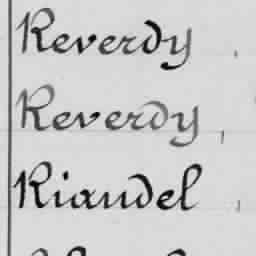 Reverdy
Reverdy,
Riandel